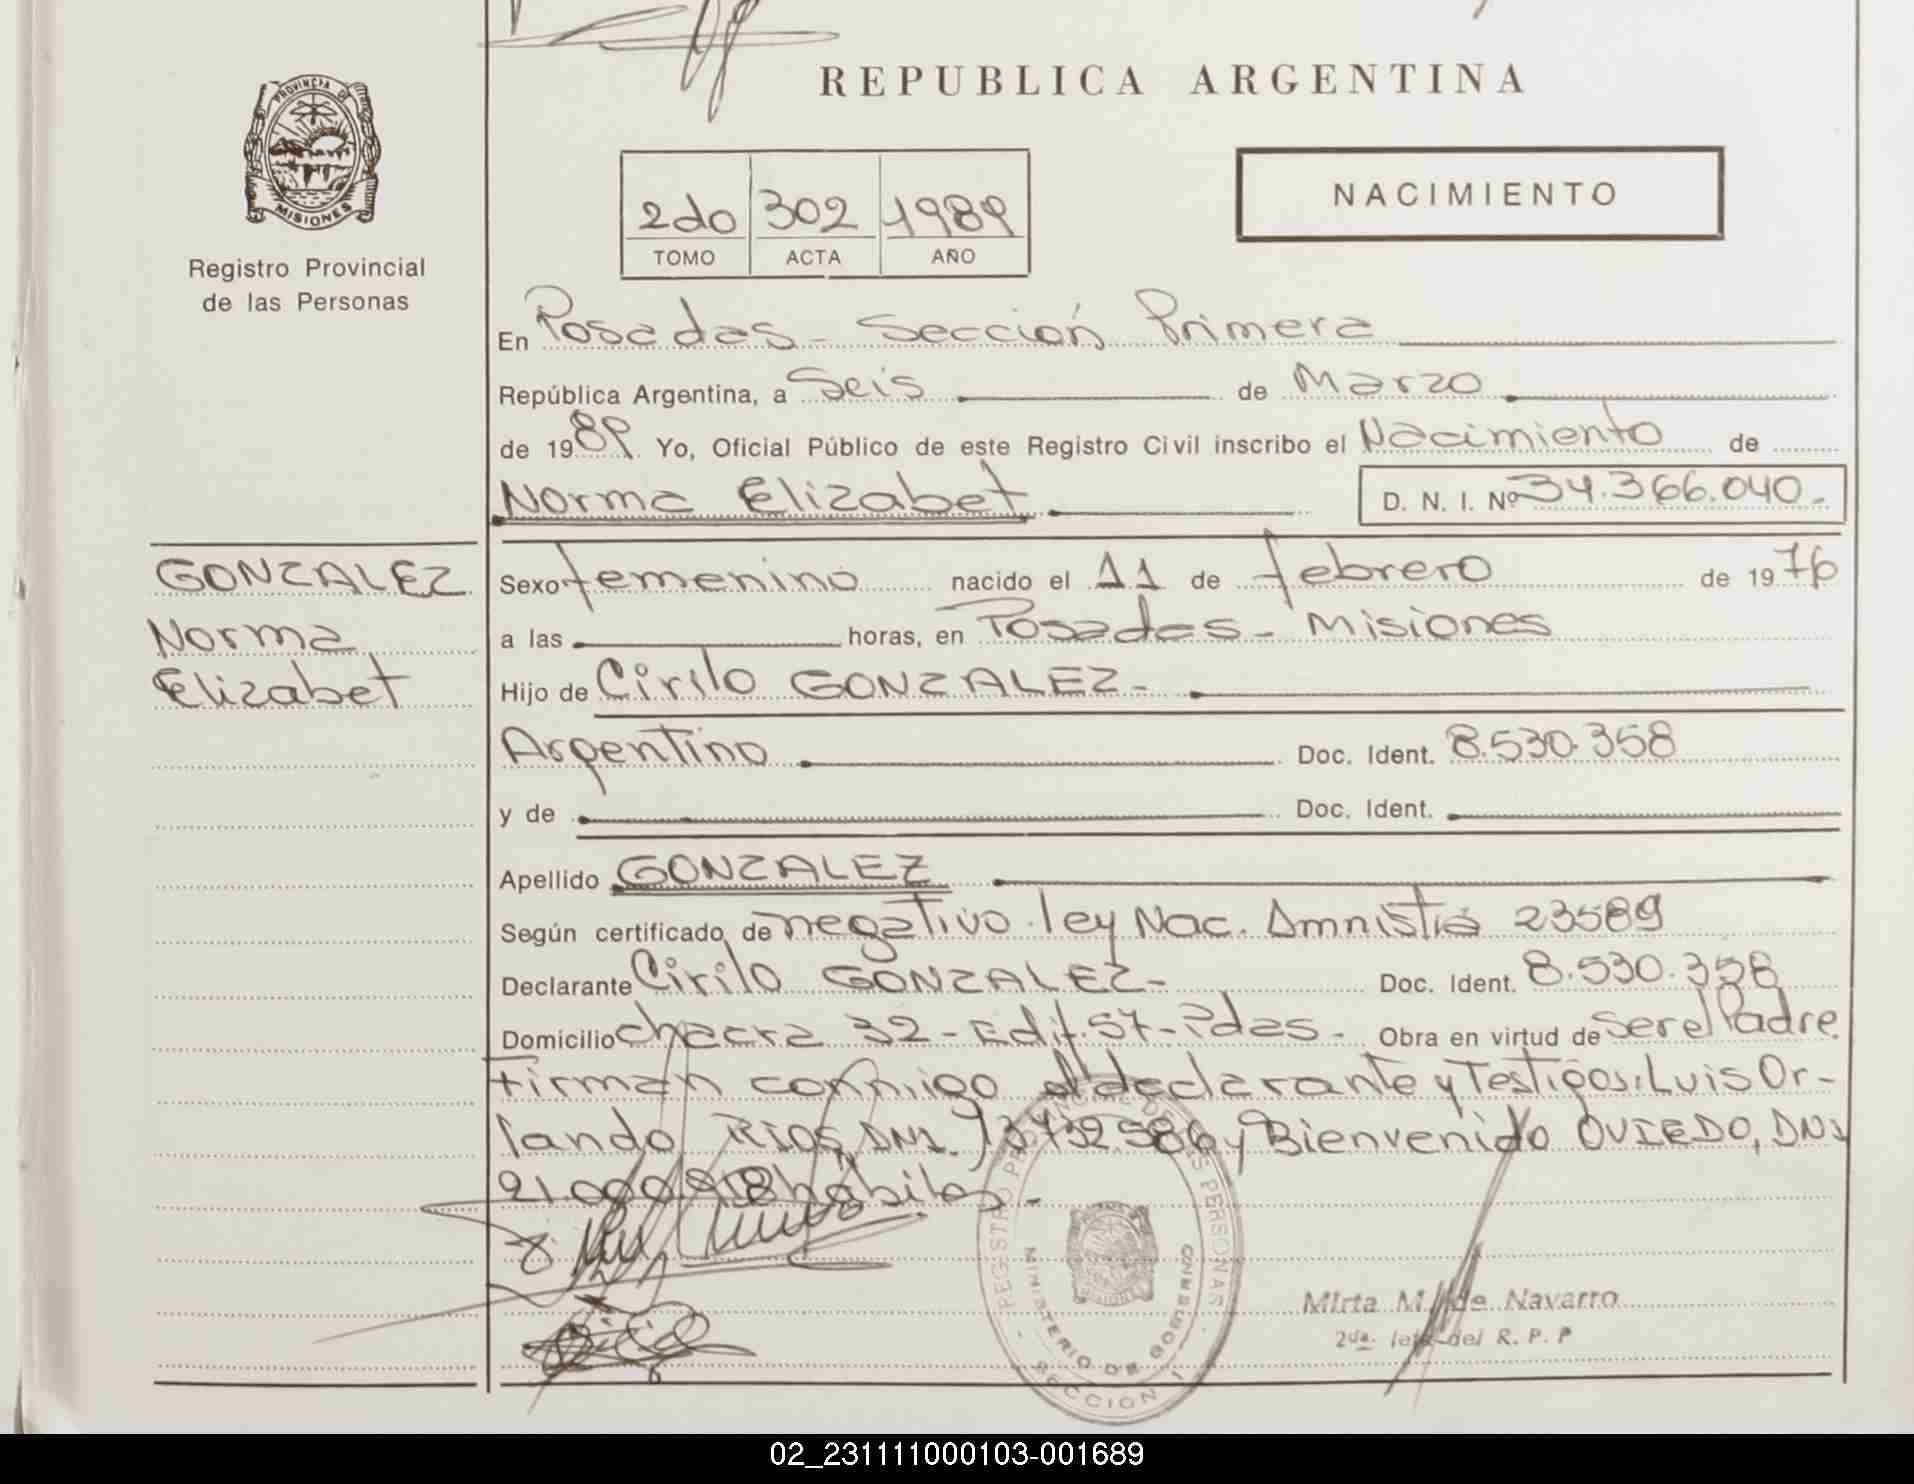 REPUBLICA ARGENTINA
PROVINCIA DE
MISIONES
Registro Provincial
de las Personas
2do 302 1989
TOMO ACTA AÑO
NACIMIENTO
En Posadas - Sección Primera
República Argentina, a Seis de Marzo
de 1989. Yo, Oficial Público de este Registro Civil inscribo el Nacimiento de
Norma Elizabet D. N. I. Nº 34.366.040.-
GONZALEZ
Norma
Elizabet
Sexo femenino nacido el 11 de febrero de 1976
a las horas, en Posadas - Misiones
Hijo de Cirilo GONZALEZ-
Argentino Doc. Ident. 8.530.358
y de Doc. Ident.
Apellido GONZALEZ
Según certificado de negativo ley Nac. Amnistia 23589
Declarante Cirilo GONZALEZ- Doc. Ident. 8.530.358
Domicilio chacra 32 - Edif. 57 - Pdas. - Obra en virtud de Ser el Padre
Firman conmigo el declarante y Testigos: Luis Or-
lando RIOS, DNI. y Bienvenido OVIEDO, DNI
hábiles.-
REGISTRO PROVINCIAL DE LAS PERSONAS
MINISTERIO DE GOBIERNO
SECCION 1
Mirta M. de Navarro
2da. Jefe del R. P. P
02_231111000103-001689